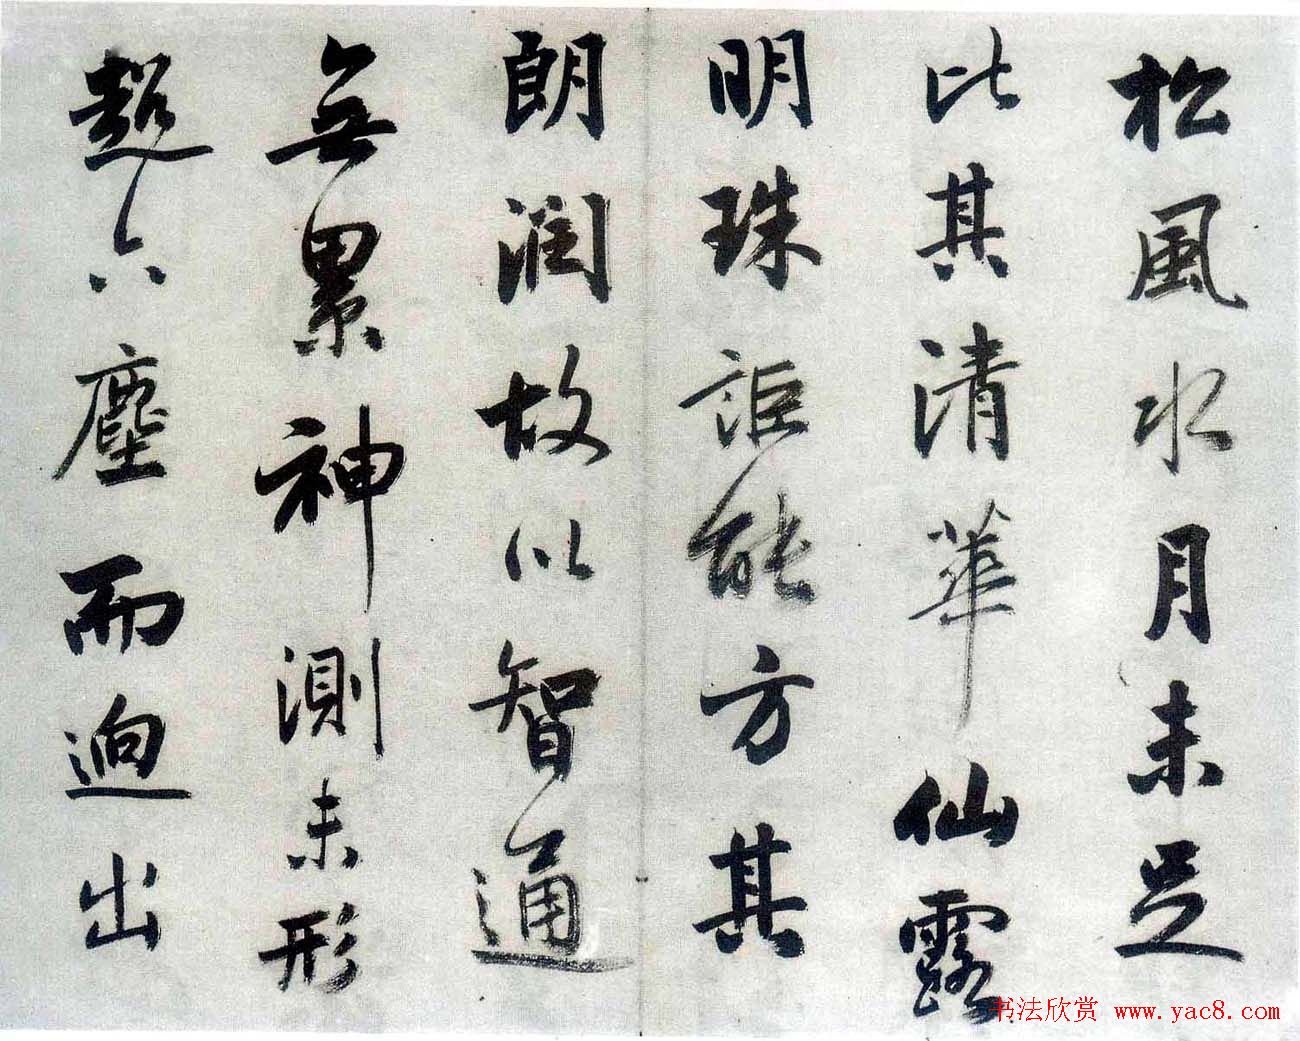 松風水月未足
比其清華仙露
明珠詎能方其
朗潤故以智通
無累神測未形
超六塵而迥出
书法欣赏 www.yac8.com